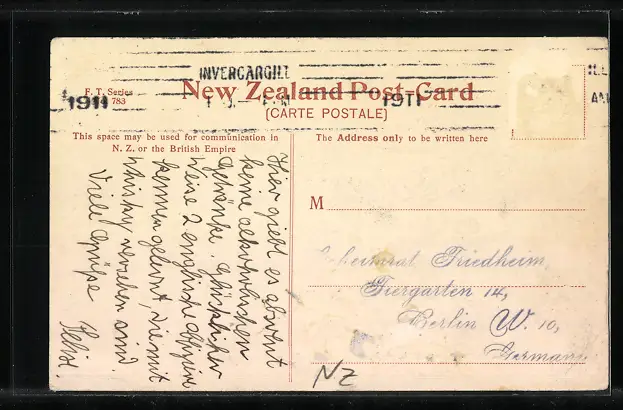 INVERCARGILL
1911
1911
F. T. Series
783
New Zealand Post-Card
(CARTE POSTALE)
This space may be used for communication in
N. Z. or the British Empire
The Address only to be written here
M
Hier giebt es absolut
keine alkoholischen
Getränke. Glücklicher
Weise 2 englische Offiziere
kennen gelernt, die mit
Whisky versehen sind.
Viele Grüße
Geheimrat Friedheim,
Tiergarten 14,
Berlin W. 10,
Germany
NZ